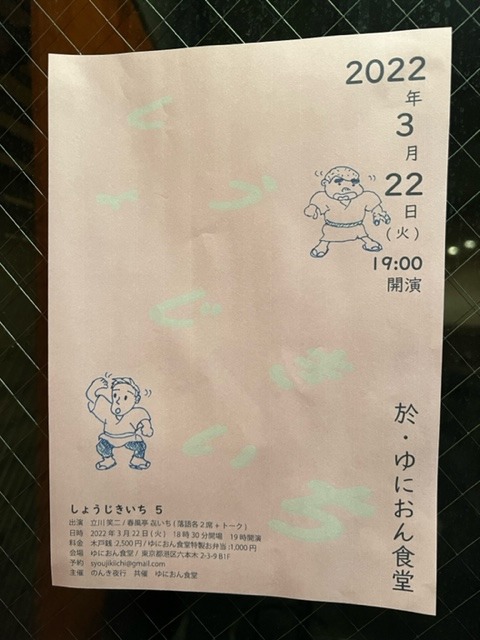 2022
年
3
月
22
日
(火)
19:00
開演
しょうじきいち
於・ゆにおん食堂
しょうじきいち 5
出演 立川 笑二 / 春風亭 㐂いち ( 落語各2席 + トーク )
日時 2022 年 3 月 22 日 ( 火 ) 18 時 30 分開場 19 時開演
料金 木戸銭 :2,500 円 / ゆにおん食堂特製お弁当 :1,000 円
会場 ゆにおん食堂 / 東京都港区六本木 2-3-9 B1F
予約 syoujikiichi@gmail.com
主催 のんき夜行 共催 ゆにおん食堂